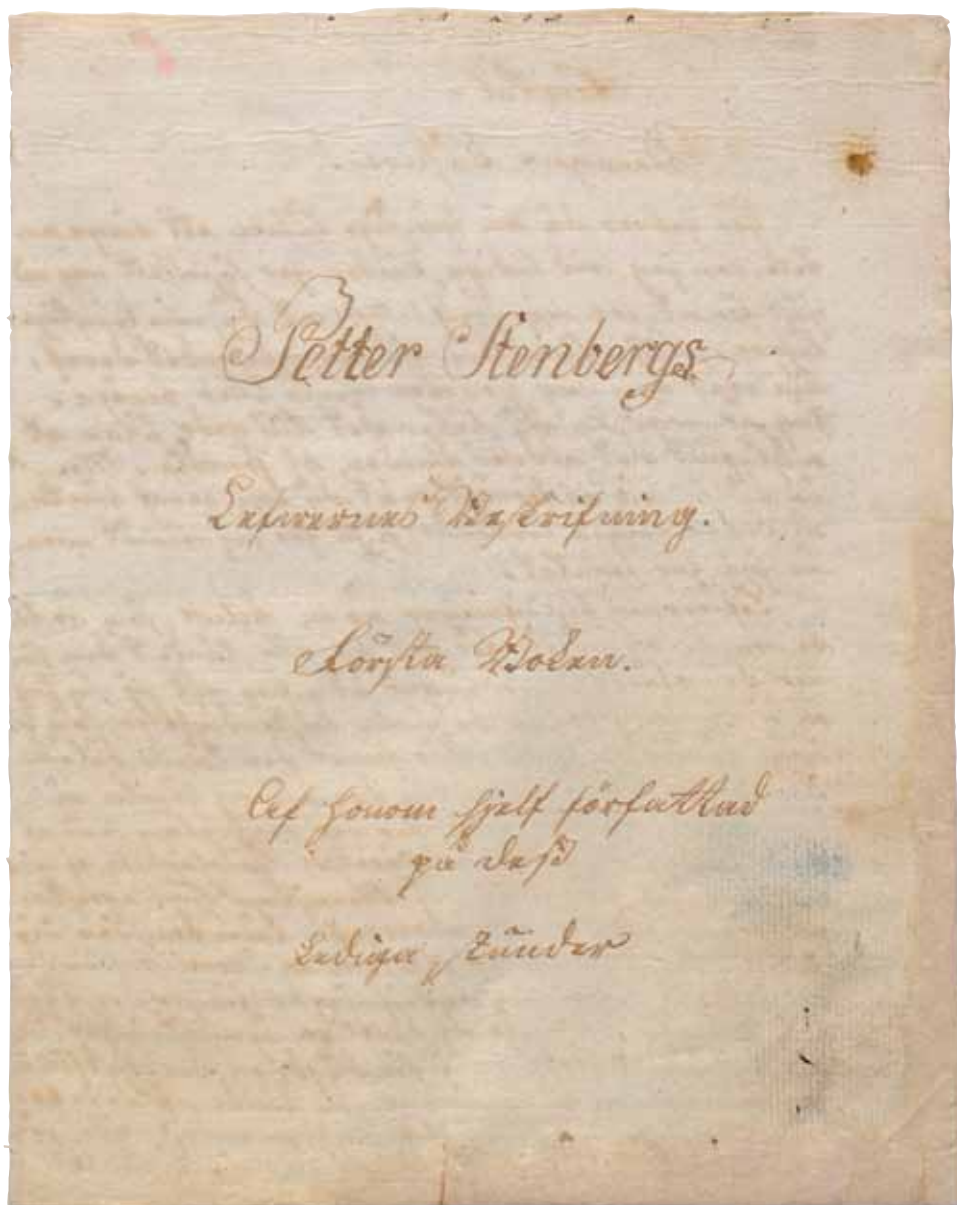 Petter Stenbergs
Lefwernes Beskrifning.
Första Boken.
Af honom sjelf författad
på dess
Lediga stunder